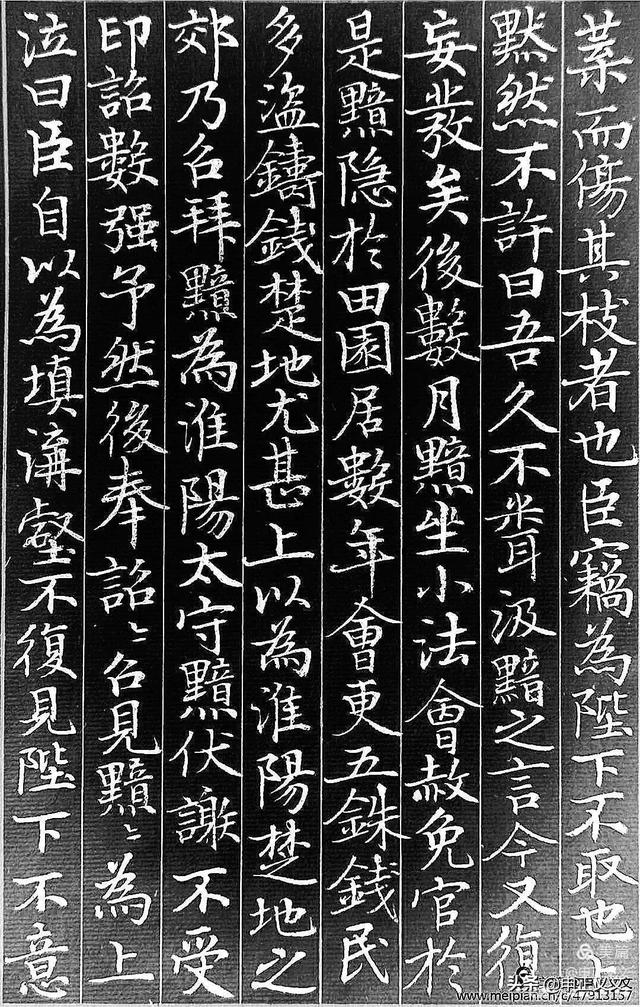 葉而傷其枝者也臣竊為陛下不取也上
默然不許曰吾久不聞汲黯之言今又復
妄發矣後數月黯坐小法會赦免官於
是黯隱於田園居數年會更五銖錢民
多盜鑄錢楚地尤甚上以為淮陽楚地之
郊乃召拜黯為淮陽太守黯伏謝不受
印詔數强予然後奉詔〻召見黯〻為上
泣曰臣自以為填溝壑不復見陛下不意
美篇
www.meipian.cn/c/47913157